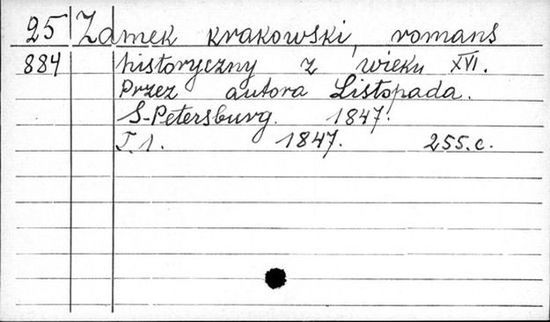 25 Zamek krakowski, romans
884 historyczny z wieku XVI.
Przez autora Listopada.
S-Petersburg. 1847.
T.1. 1847. 255.c.